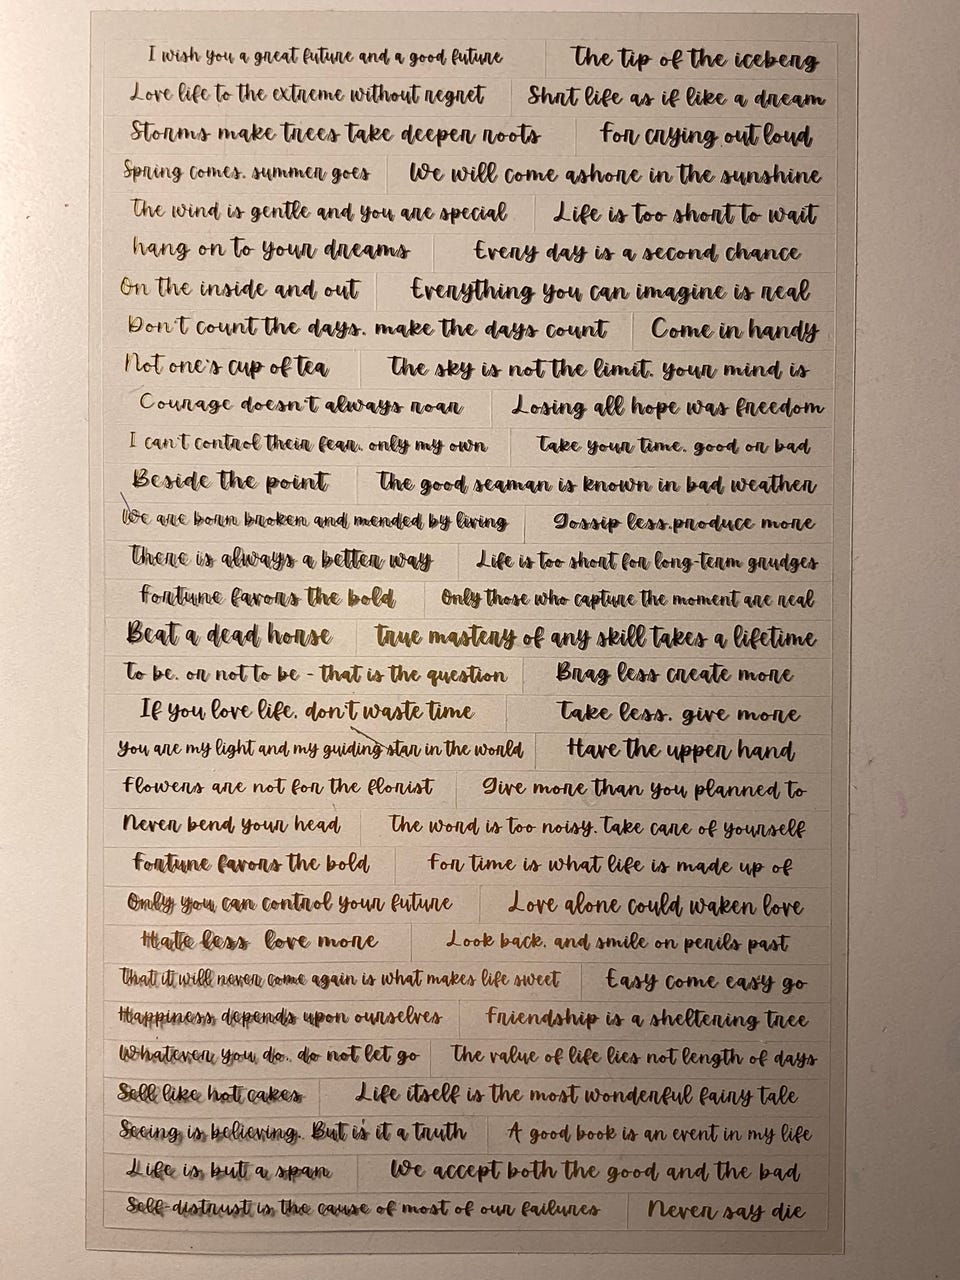 I wish you a great future and a good future
The tip of the iceberg
Love life to the extreme without regret
Shrt life as if like a dream
Storms make trees take deeper roots
For crying out loud
Spring comes. summer goes
We will come ashore in the sunshine
The wind is gentle and you are special
Life is too short to wait
hang on to your dreams
Every day is a second chance
On the inside and out
Everything you can imagine is real
Don't count the days. make the days count
Come in handy
Not one's cup of tea
The sky is not the limit. your mind is
Courage doesn't always roar
Losing all hope was freedom
I can't control their fear. only my own
Take your time. good or bad
Beside the point
The good seaman is known in bad weather
We are born broken and mended by living
Gossip less.produce more
There is always a better way
Life is too short for long-term grudges
Fortune favors the bold
Only those who capture the moment are real
Beat a dead horse
True mastery of any skill takes a lifetime
To be. or not to be - that is the question
Brag less create more
If you love life. don't waste time
Take less. give more
You are my light and my guiding star in the world
Have the upper hand
Flowers are not for the florist
Give more than you planned to
Never bend your head
The word is too noisy. Take care of yourself
Fortune favors the bold
For time is what life is made up of
Only you can control your future
Love alone could waken love
Hate less love more
Look back. and smile on perils past
That it will never come again is what makes life sweet
Easy come easy go
Happiness depends upon ourselves
Friendship is a sheltering tree
Whatever you do.. do not let go
The value of life lies not length of days
Sell like hot cakes
Life itself is the most wonderful fairy tale
Seeing is believing. But is it a truth
A good book is an event in my life
Life is but a span
We accept both the good and the bad
Self-distrust is the cause of most of our failures
Never say die